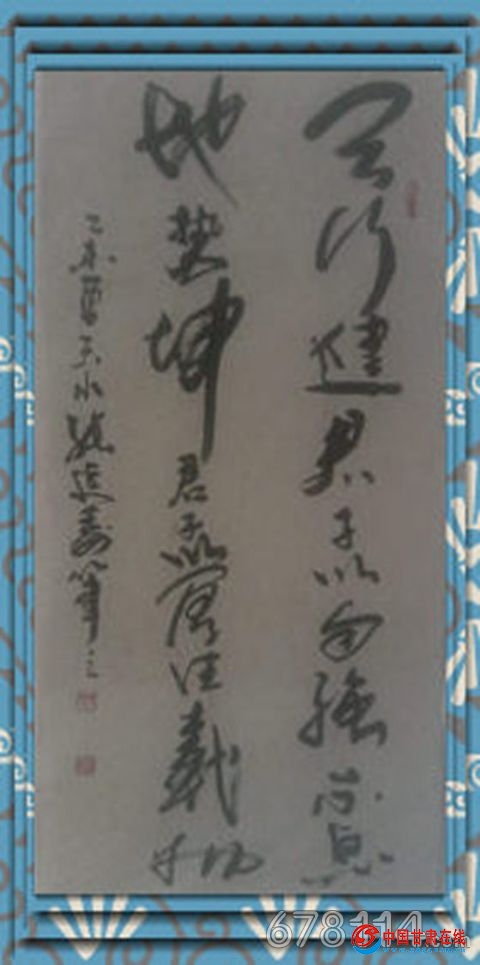 天行健君子以自強不息
地势坤君子以厚德載物
乙未夏天水
678114
中国甘肃在线